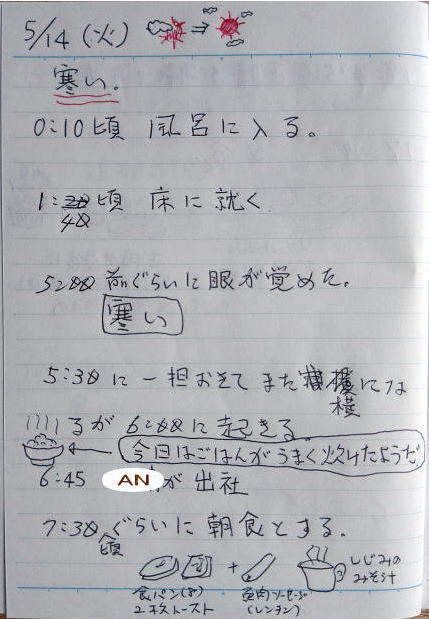 5/14 (火)
寒い。
0:10頃 風呂に入る。
1:40頃 床に就く
5:00 前ぐらいに眼が覚めた。
寒い
5:30に一担おきてまた横にな
るが 6:00に起きる。
今日はごはんがうまく炊けたようだ
6:45 AN が出社
7:30頃ぐらいに朝食とする。
食パン(8)
エキストースト
+
魚肉ソーセージ
(レンチン)
しじみの
みそ汁